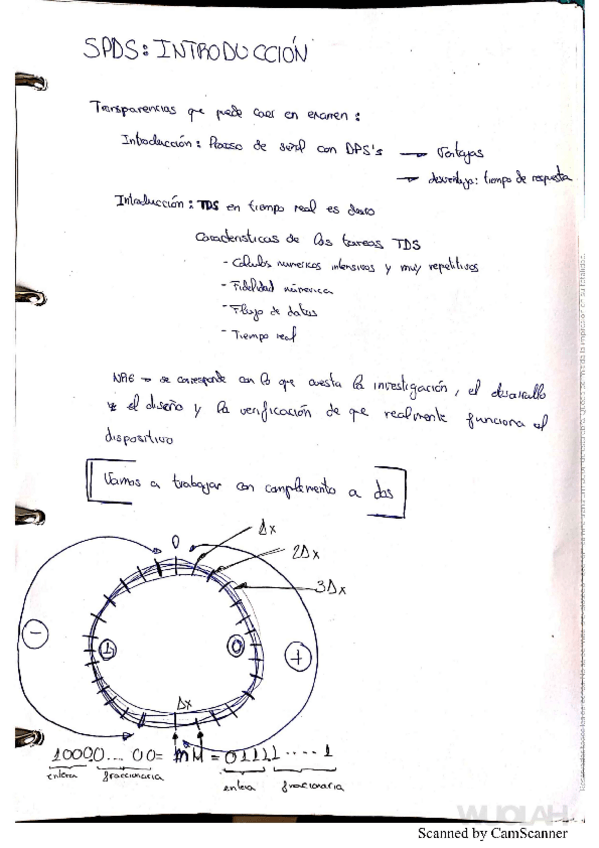 SPDS: INTRODUCCIÓN
Transparencias que puede caer en examen:
Introducción: Proceso de señal con DPS's → Ventajas
→ desventaja: tiempo de respuesta
Introducción: TDS en tiempo real es
Características de las tareas TDS
- Cálculos numéricos intensivos y muy repetitivos
- Fidelidad númerica
- Flujo de datos
- Tiempo real
→ se corresponde con lo que cuesta la investigación, el desarrollo
y el diseño y la verificación de que realmente funciona el
dispositivo
Vamos a trabajar con complemento a dos
0
Δx
2Δx
3Δx
-
1
0
+
Δx
10000...00 = m M = 01111....1
entera fraccionaria entera fraccionaria
WUOLAH
Scanned by CamScanner